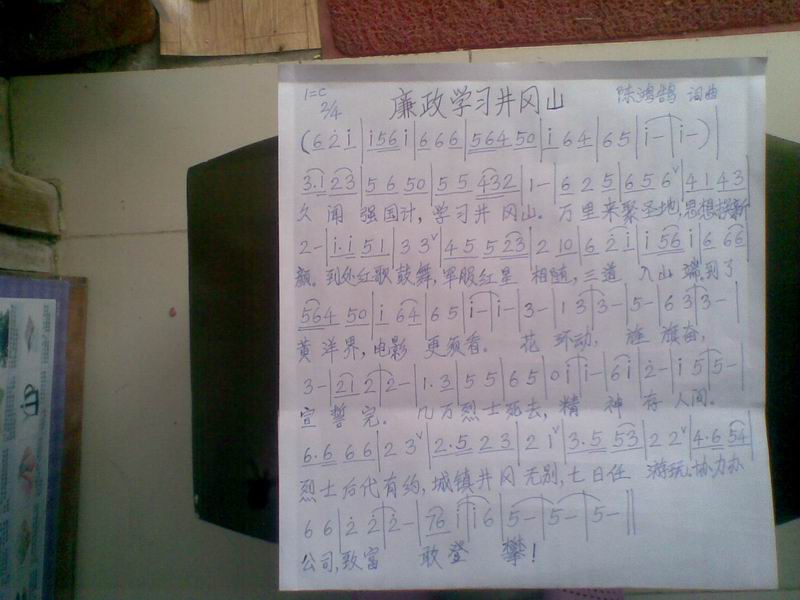 1=C
2/4
廉政学习井冈山
陈鸿鹄 词曲
(6 2 i | i 5 6 i | 6 6 6 | 5 6 4 5 0 | i 6 4 | 6 5 | i - | i - ) |
3·1 2 3 | 5 6 5 0 | 5 5 4 3 2 | 1 - | 6 2 5 | 6 5 6 ∨ | 4 1 4 3
久 闻 强国计, 学习井 冈山. 万里来聚圣地, 思想换新
2 - | i·i 5 1 | 3 3 ∨ | 4 5 5 2 3 | 2 1 0 | 6 2 i | i 5 6 i | 6 6 6
颜. 到处红歌鼓舞, 军服红星 相随, 三道 入山 端到了
5 6 4 5 0 | i 6 4 | 6 5 | i - | i - | 3 - | 1 3 | 3 - | 5 - | 6 3 | 3 - |
黄洋界, 电影 更须看. 花 环动, 旌 旗奋,
3 - | 2 i 2 | 2 - | 1·3 | 5 5 | 6 5 | 0 i | i - | 6 i | 2 - | i 5 | 5 - |
宣 誓 完. 几万烈士死去, 精 神 存 人间.
6·6 6 6 | 2 3 ∨ | 2·5 2 3 | 2 i ∨ | 3·5 5 3 | 2 2 ∨ | 4·6 5 4
烈士后代有约, 城镇井冈无别, 七日任 游玩, 协力办
6 6 | 2 2 | 2 - | 7 6 i | i 6 | 5 - | 5 - | 5 - ‖
公司, 致富 敢登 攀!